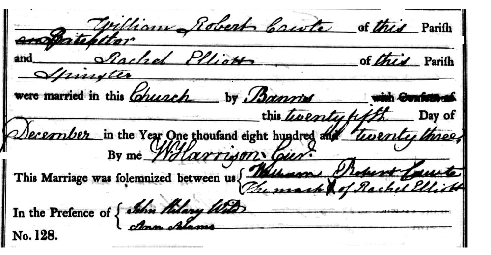 William Robert Cawte of this Parish
Batchelor
and Rachel Elliott of this Parish
Spinster
were married in this Church by Banns with Consent of
this twenty fifth Day of
December in the Year One thousand eight hundred and twenty three
By me W Harrison Cur.
This Marriage was solemnized between us { William Robert Cawte
The mark X of Rachel Elliott
In the Presence of { John Hilary Wild
Ann Adams
No. 128.